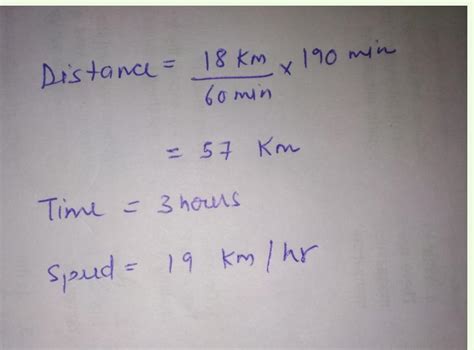 Distance = 18 Km / 60 min × 190 min
= 57 Km
Time = 3 hours
Speed = 19 Km / hr